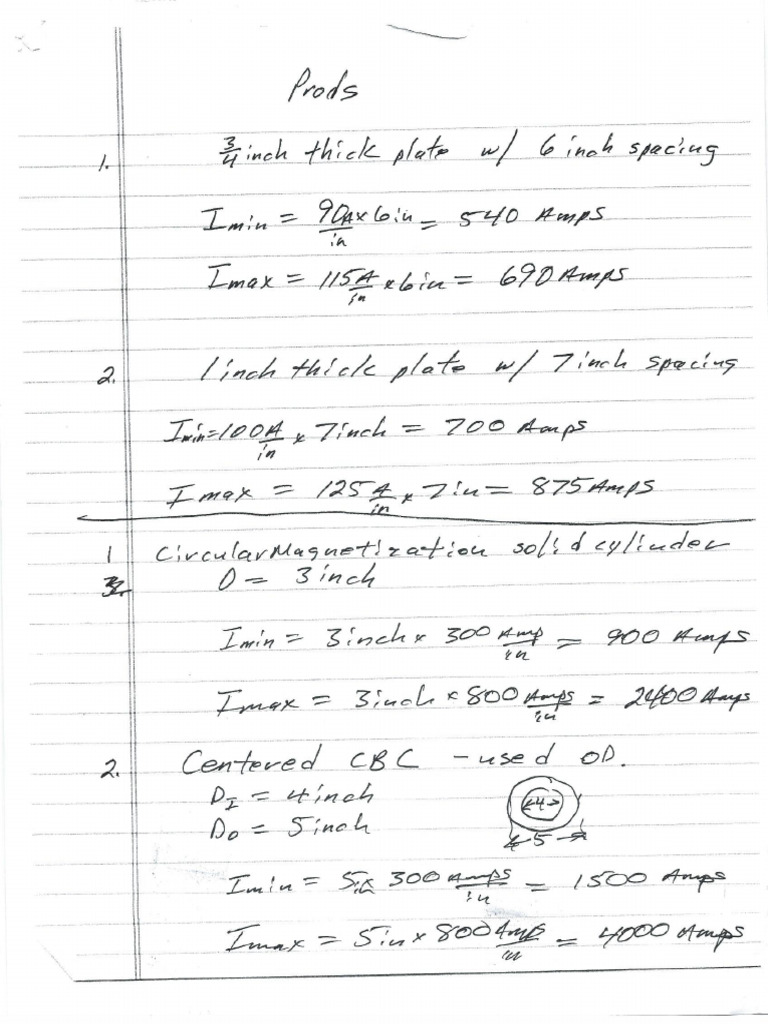 Prods
1. 3/4 inch thick plate w/ 6 inch spacing
Imin = 90A/in x 6in = 540 Amps
Imax = 115A/in x 6in = 690 Amps
2. 1 inch thick plate w/ 7 inch spacing
Imin = 100A/in x 7inch = 700 Amps
Imax = 125A/in x 7in = 875 Amps
1 Circular Magnetization solid cylinder
D = 3 inch
Imin = 3inch x 300 Amp/in = 900 Amps
Imax = 3inch x 800 Amps/in = 2400 Amps
2. Centered CBC - used OD.
DI = 4 inch
4
Do = 5 inch
5
Imin = 5in 300 Amps/in = 1500 Amps
Imax = 5in x 800 Amp/in = 4000 Amps